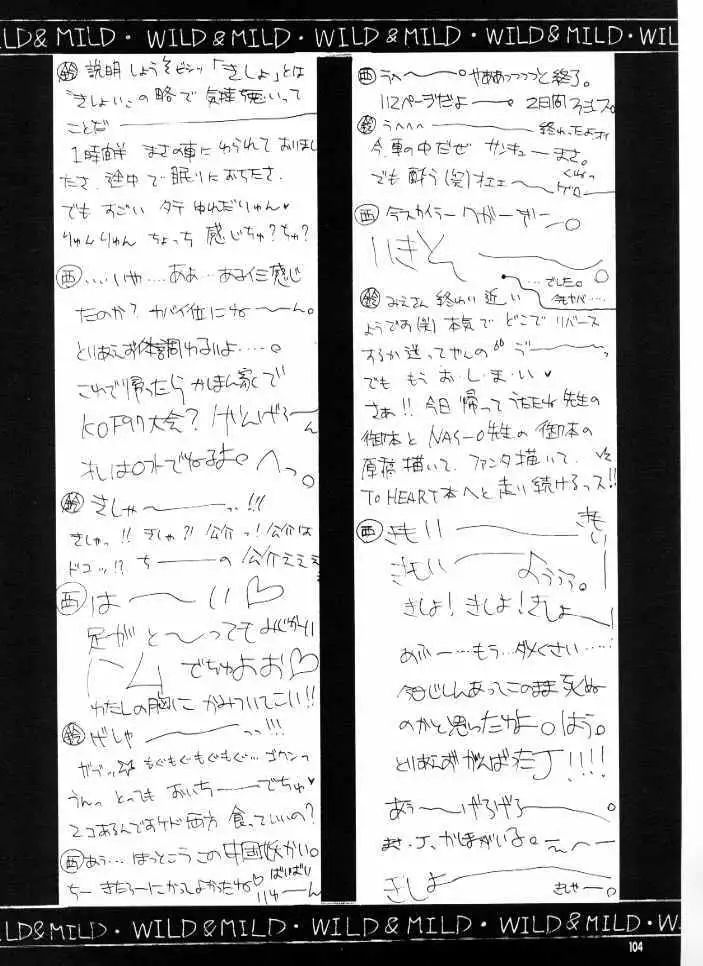 LD & MILD · WILD & MILD · WILD & MILD · WILD & MILD · WIL
鈴 説明しようぞビシッ「きしょ」とは
"きしょい"の略で気持ち悪いって
ことだ
1時間半 まさの車にゆられておりまし
たさ.途中で眠りにおちたさ.
でも すごい タテ ゆれだりゅん♥
りゅんりゅん ちょっち 感じちゅ?ちゅ?
西 ....いや....あぁ...あるイミ感じ
たのか? ヤバイ位にね〜〜ん。
とりあえず体調わるいよ.....。
これで帰ったら かほん家で
KOF97大会? げんげろ〜ん
オレは ソトでねるよ。へっ。
鈴 きしゃ〜〜っ..!!!
きしゃっ!! きしゃ?! 公介っ!公介は
ドコッ!? ち───の 公介ええ
西 は〜〜い♡
足が と〜ってもみじかい
ハム でちゅよお♡
わたしの胸に かみついてこい!!
鈴 げしゃ〜〜っっ!!!
ガブッ もぐもぐもぐもぐ...ゴクンっ
うんっ とっても おいち〜〜でちゅ♥
2コあるんですケド 両方 食っていいの?
西 あぅ... ほっとこう この中国妖かい。
ちー きたろーにかってよかったね♡ ばいばい
西 うへ〜〜。やああっつっつっと終了。
112ページだよ〜〜。2日間
鈴 うへへへ 終わったよオイ
今、車の中だぜ サンキュー まさ。
でも 酔う(笑)オエェ〜
西 今スカイラークがーずー
...でした。
鈴 みえさん 終わり 近い
ようです(笑)本気で どこで リバース
するか迷ってやんの
でも もう お・し・ま・い♥
さぁ!! 今日 帰って うたたね先生の
御本と NAS-O先生の 御本の
原稿描いて、ファンタ描いて、
TO HEART本へと走り続けるっス!!
西 きもい〜〜 きもい
きもい〜〜ようううう。
きしょ! きしょ! きしょ〜
あぶ〜...もう..ダメくさい.....
今じしんあってこのまま死ぬ
のかと思ったわよ。はう。
とりあえずがんばったJ!!!!
あう〜〜げろげろ〜〜。
きしょ〜〜 きしゃ〜。
LD & MILD · WILD & MILD · WILD & MILD · WILD & MILD · W
104